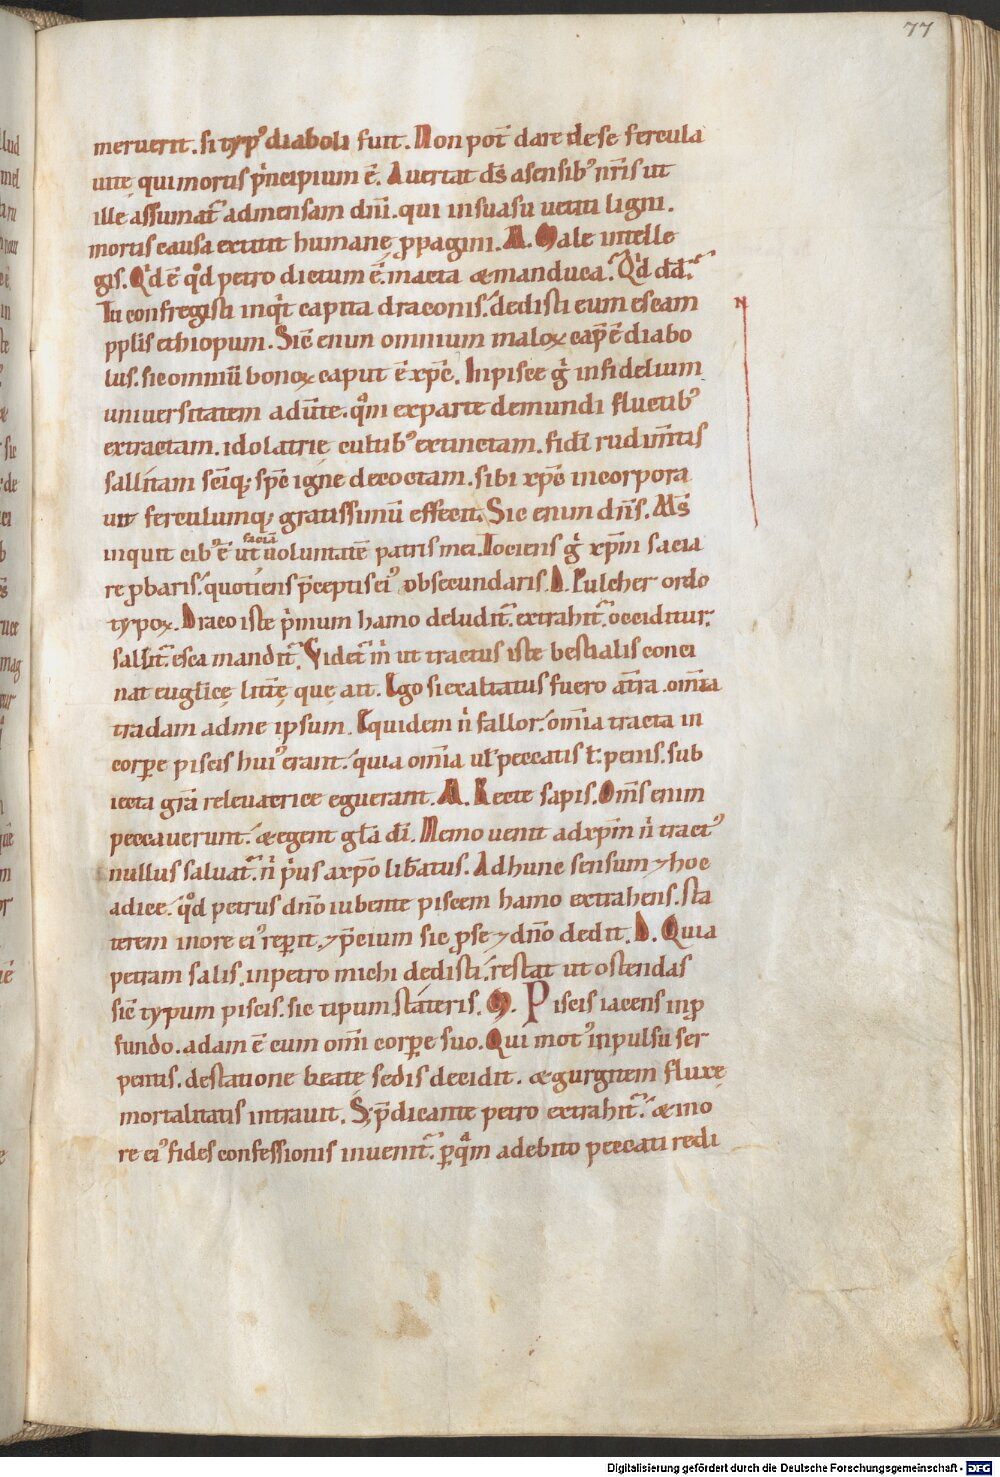 77
meruerit. si typ᾽ diaboli fuit. Non pot̄ dare de se fercula
uitę qui mortis p̄ncipium ē. Auertat d̄s a sensib᾽ nr̄is ut
ille assumat᾽ ad mensam dn̄i. qui in suasu uetiti ligni.
mortis causa extitit humanę ꝓpagini. A. Male intelle
gis. Qd ē qd petro dictum ē. macta & manduca. Qd dd.
Tu confregisti inqt capita draconis. dedisti eum escam
pplis ethiopum. Sic̄ enim omnium maloꝝ cap̄ ē diabo
lus. sic omniū bonoꝝ caput ē xp̄c. In pisce g̊ infidelium
uniuersitatem adūte. qm̄ ex parte de mundi fluctib᾽
extractam. idolatrię cultib᾽ extinctam. fidī rudim̄tis
sallitam sc̄iq; sp̄c igne decoctam. sibi xp̄c incorpora
uit ferculumq; gratissimū effecit. Sic enim dn̄s. M̄s
inquit cib᾽ ē ut faciā uoluntatē patris mei. Tociens g̊ xp̄m sacia
re ꝓbaris. quotiens p̄ceptis ei᾽ obsecundaris. D. Pulcher ordo
typoꝝ. Draco iste p̄mum hamo deludit᾽. extrahit᾽. occiditur.
sallit᾽. esca mandit᾽. Videt᾽ m̄ ut tractus iste bestialis conci
nat euglicę litt̄ę que ait. Ego si exaltatus fuero a t̄ra. om̄ia
tradam ad me ipsum. Equidem n̄ fallor. om̄ia tracta in
corpe piscis hui᾽ erant. quia om̄ia ul̄ peccatis ł penis. sub
iecta gr̄a releuatrice eguerant. A. Recte sapis. Om̄s enim
peccauerunt. & egent gl̄a dī. Nemo uenit ad xp̄m n̄ tract᾽
nullus saluat᾽. n̄ p̄us a xp̄o lib̄atus. Ad hunc sensum ⁊ hoc
adice. qd petrus dn̄o iubente piscem hamo extrahens. sta
terem in ore ei᾽ repit. ⁊ p̄cium sic ꝓ se ⁊ dn̄o dedit. D. Quia
petram salis. in petro michi dedisti. restat ut ostendas
sic̄ typum piscis. sic tipum stateris. M. Piscis iacens in ꝓ
fundo. adam ē cum om̄i corpe suo. Qui mot᾽ inpulsu ser
pentis. de statione beatę sedis decidit. & gurgitem fluxę
mortalitatis intrauit. S; p̄dicante petro extrahit᾽. & in o
re ei᾽ fides confessionis inuenit᾽. p qm̄ a debito peccati redi